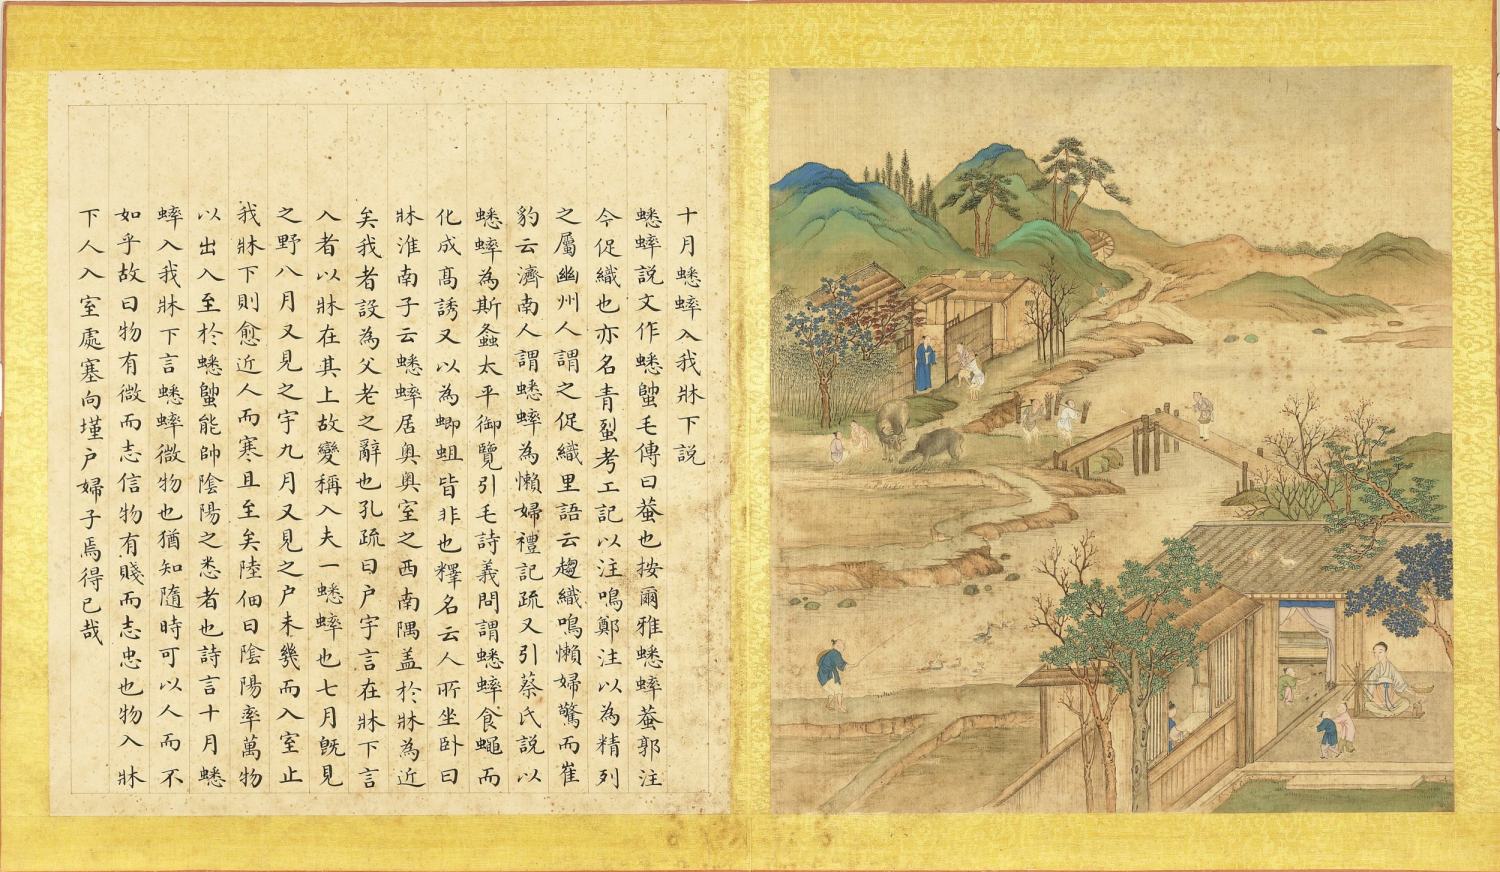 十月蟋蟀入我牀下説
蟋蟀説文作蟋䗐毛傳曰蛬也按爾雅蟋蟀蛬郭注
今促織也亦名青䖻考工記以注鳴鄭注以為精列
之屬幽州人謂之促織里語云趨織鳴懶婦驚而崔
豹云濟南人謂蟋蟀為懶婦禮記疏又引蔡氏説以
蟋蟀為斯螽太平御覽引毛詩義問謂蟋蟀食蠅而
化成高誘又以為蝍蛆皆非也釋名云人所坐卧曰
牀淮南子云蟋蟀居奥奥室之西南隅盖於牀為近
矣我者設為父老之辭也孔疏曰户宇言在牀下言
入者以牀在其上故變稱入夫一蟋蟀也七月旣見
之野八月又見之宇九月又見之户未幾而入室止
我牀下則愈近人而寒且至矣陸佃曰陰陽率萬物
以出入至於蟋䗐能帥陰陽之悉者也詩言十月蟋
蟀入我牀下言蟋蟀微物也猶知隨時可以人而不
如乎故曰物有微而志信物有賤而志忠也物入牀
下人入室處塞向墐户婦子焉得已哉